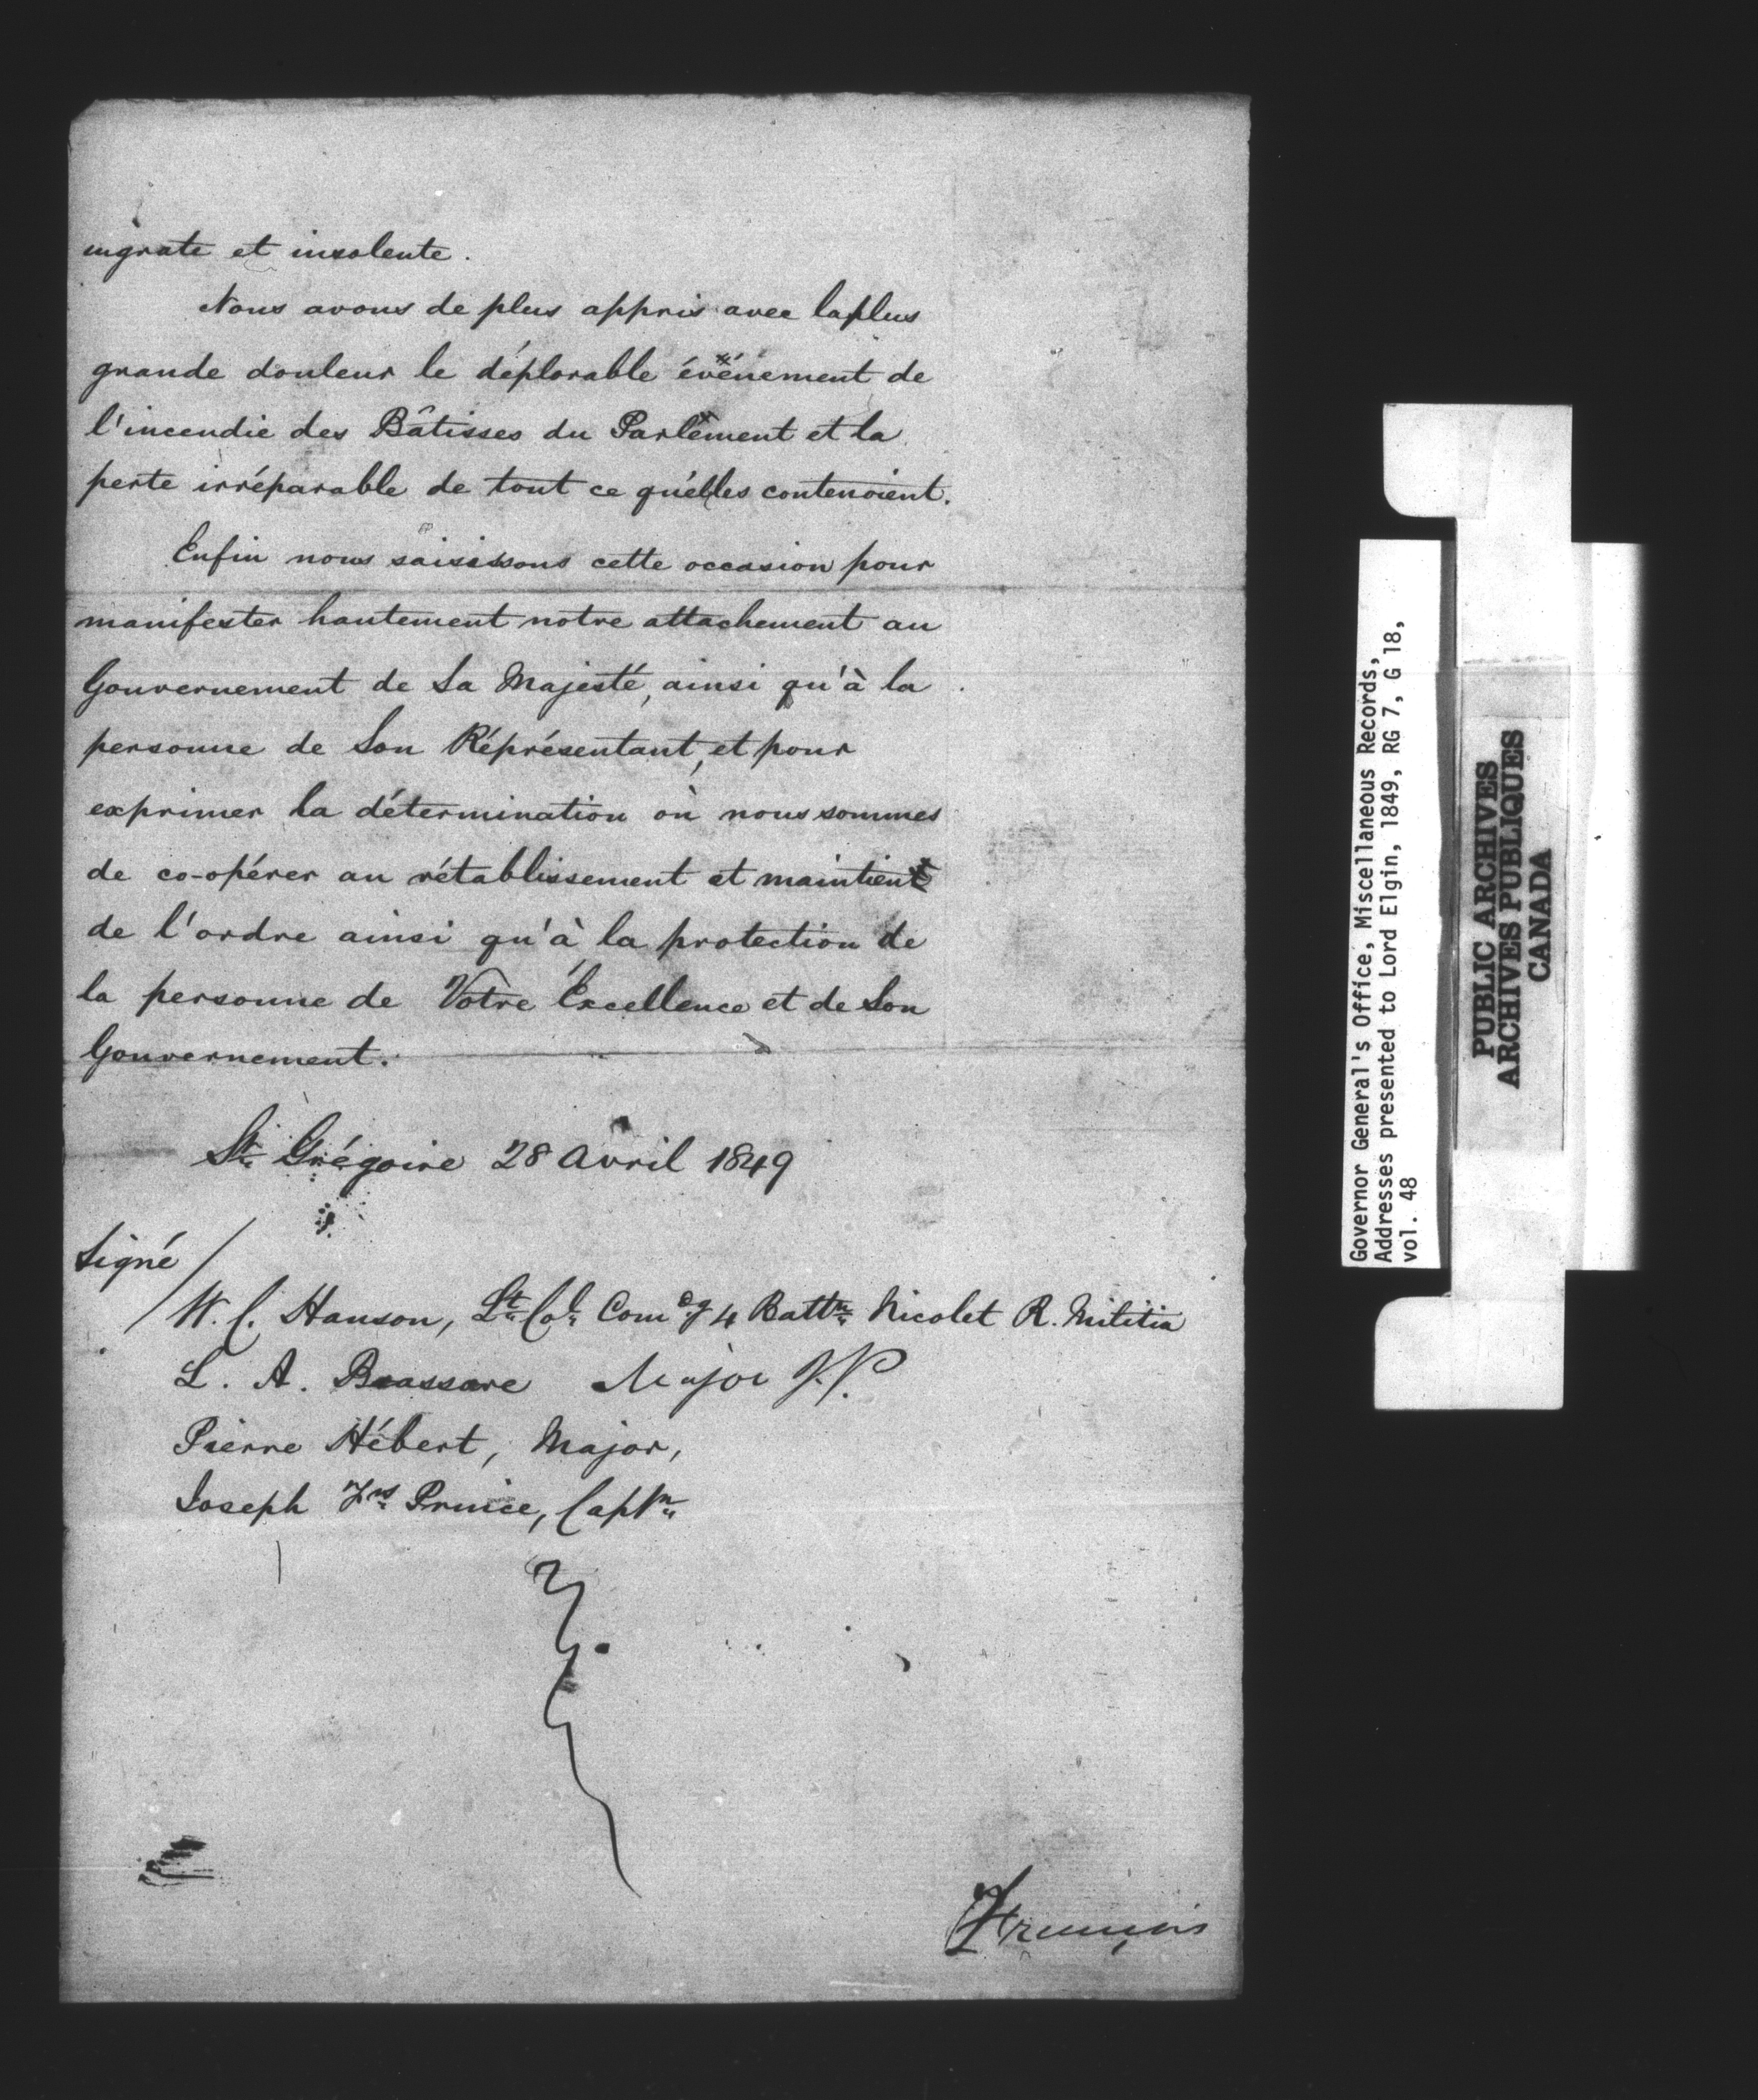 ingrate et insolente.
Nous avons de plus appris avec la plus
grande douleur le déplorable événement de
l'incendie des Bâtisses du Parlement et la
perte irréparable de tout ce qu'elles contenoient.
Enfin nous saisissons cette occasion pour
manifester hautement notre attachement au
Gouvernement de Sa Majesté, ainsi qu'à la
personne de Son Réprésentant, et pour
exprimer la détermination où nous sommes
de co-opérer au rétablissement et maintien
de l'ordre ainsi qu'à la protection de
la personne de Votre Éxcellence et de Son
Gouvernement.
St. Grégoire 28 Avril 1849
Signé /
W. C. Hanson, Lt. Col. Comdg 4 Battn. Nicolet R. Militia
L. A. Major J.P.
Pierre Hébert, Major,
Joseph Frs. Prince, Captn.
Governor General's Office, Miscellaneous Records,
Addresses presented to Lord Elgin, 1849, RG 7, G 18,
vol. 48
PUBLIC ARCHIVES
ARCHIVES PUBLIQUES
CANADA